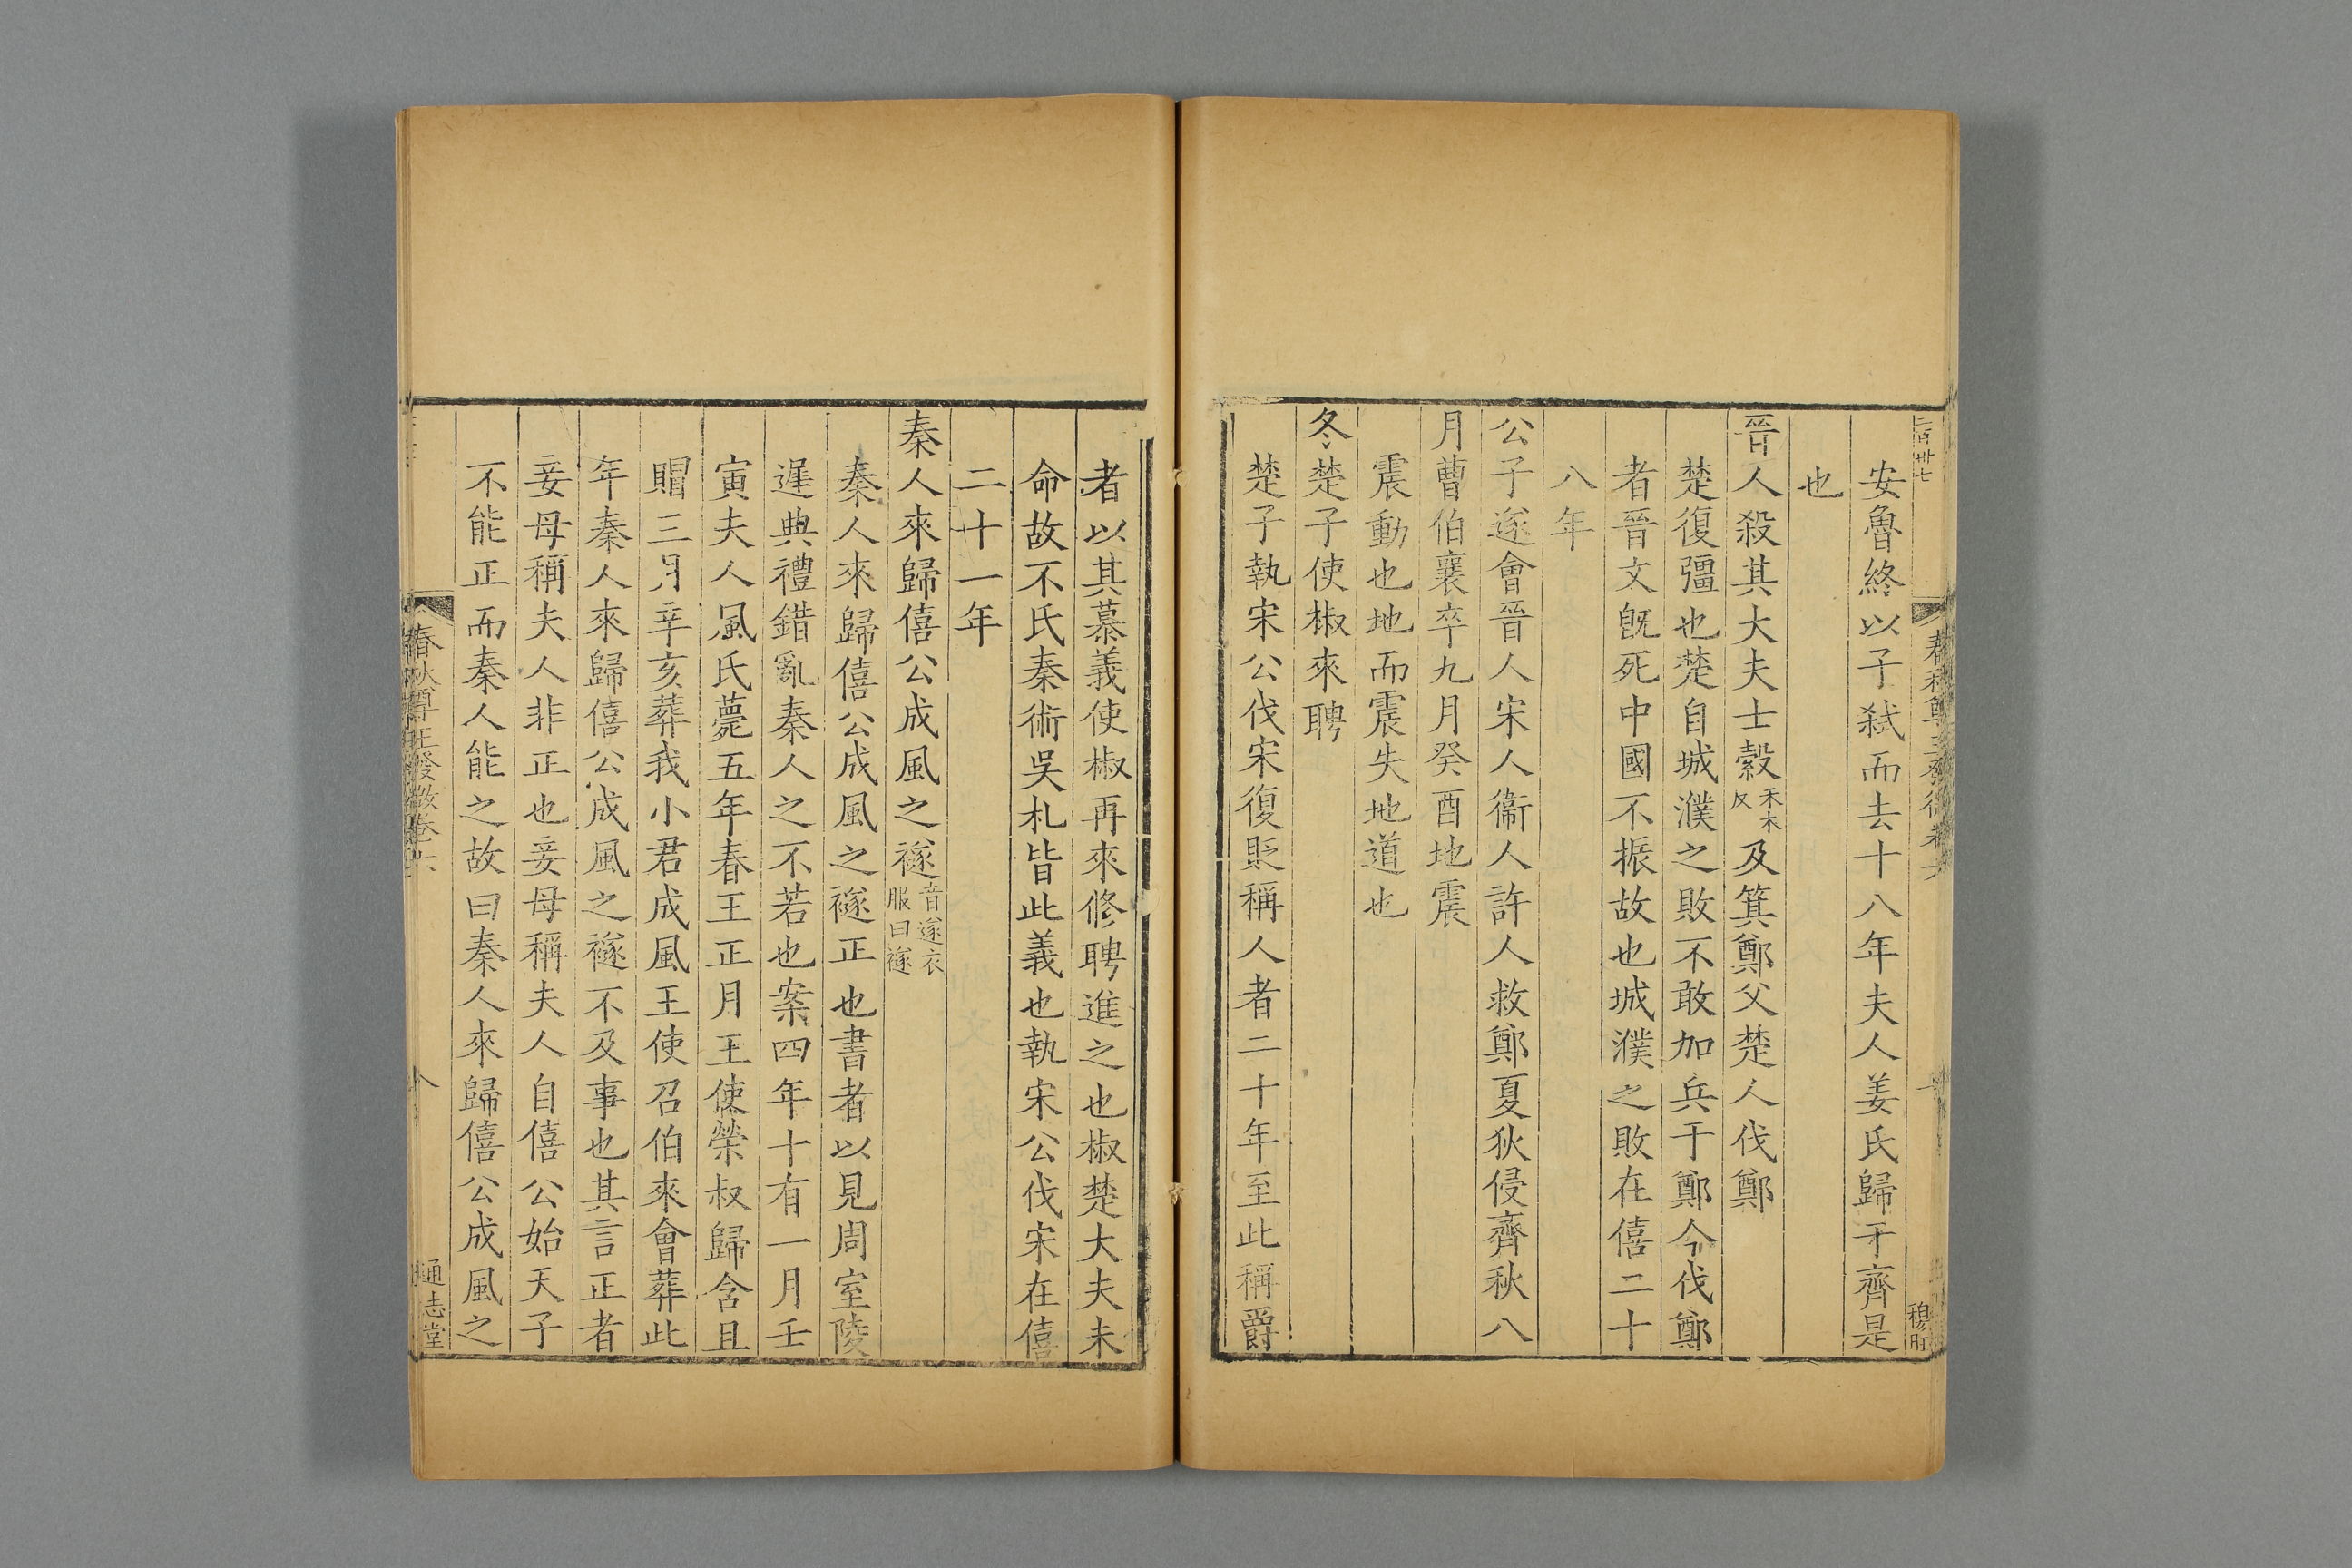 安魯終以子弑而去十八年夫人姜氏歸于齊是
也
晉人殺其大夫士縠禾木反及箕鄭父楚人伐鄭
楚復彊也楚自城濮之敗不敢加兵于鄭今伐鄭
者晉文旣死中國不振故也城濮之敗在僖二十
八年
公子遂會晉人宋人衞人許人救鄭夏狄侵齊秋八
月曹伯襄卒九月癸酉地震
震動也地而震失地道也
冬楚子使椒來聘
楚子執宋公伐宋復貶稱人者二十年至此稱爵
者以其慕義使椒再來修聘進之也椒楚大夫未
命故不氏秦術吳札皆此義也執宋公伐宋在僖
二十一年
秦人來歸僖公成風之襚音遂衣服曰襚
秦人來歸僖公成風之襚正也書者以見周室陵
遲典禮錯亂秦人之不若也案四年十有一月壬
寅夫人風氏薨五年春王正月王使榮叔歸含且
賵三月辛亥葬我小君成風王使召伯來會葬此
年秦人來歸僖公成風之襚不及事也其言正者
妾母稱夫人非正也妾母稱夫人自僖公始天子
不能正而秦人能之故曰秦人來歸僖公成風之
春秋尊王發微卷六
八
通志堂